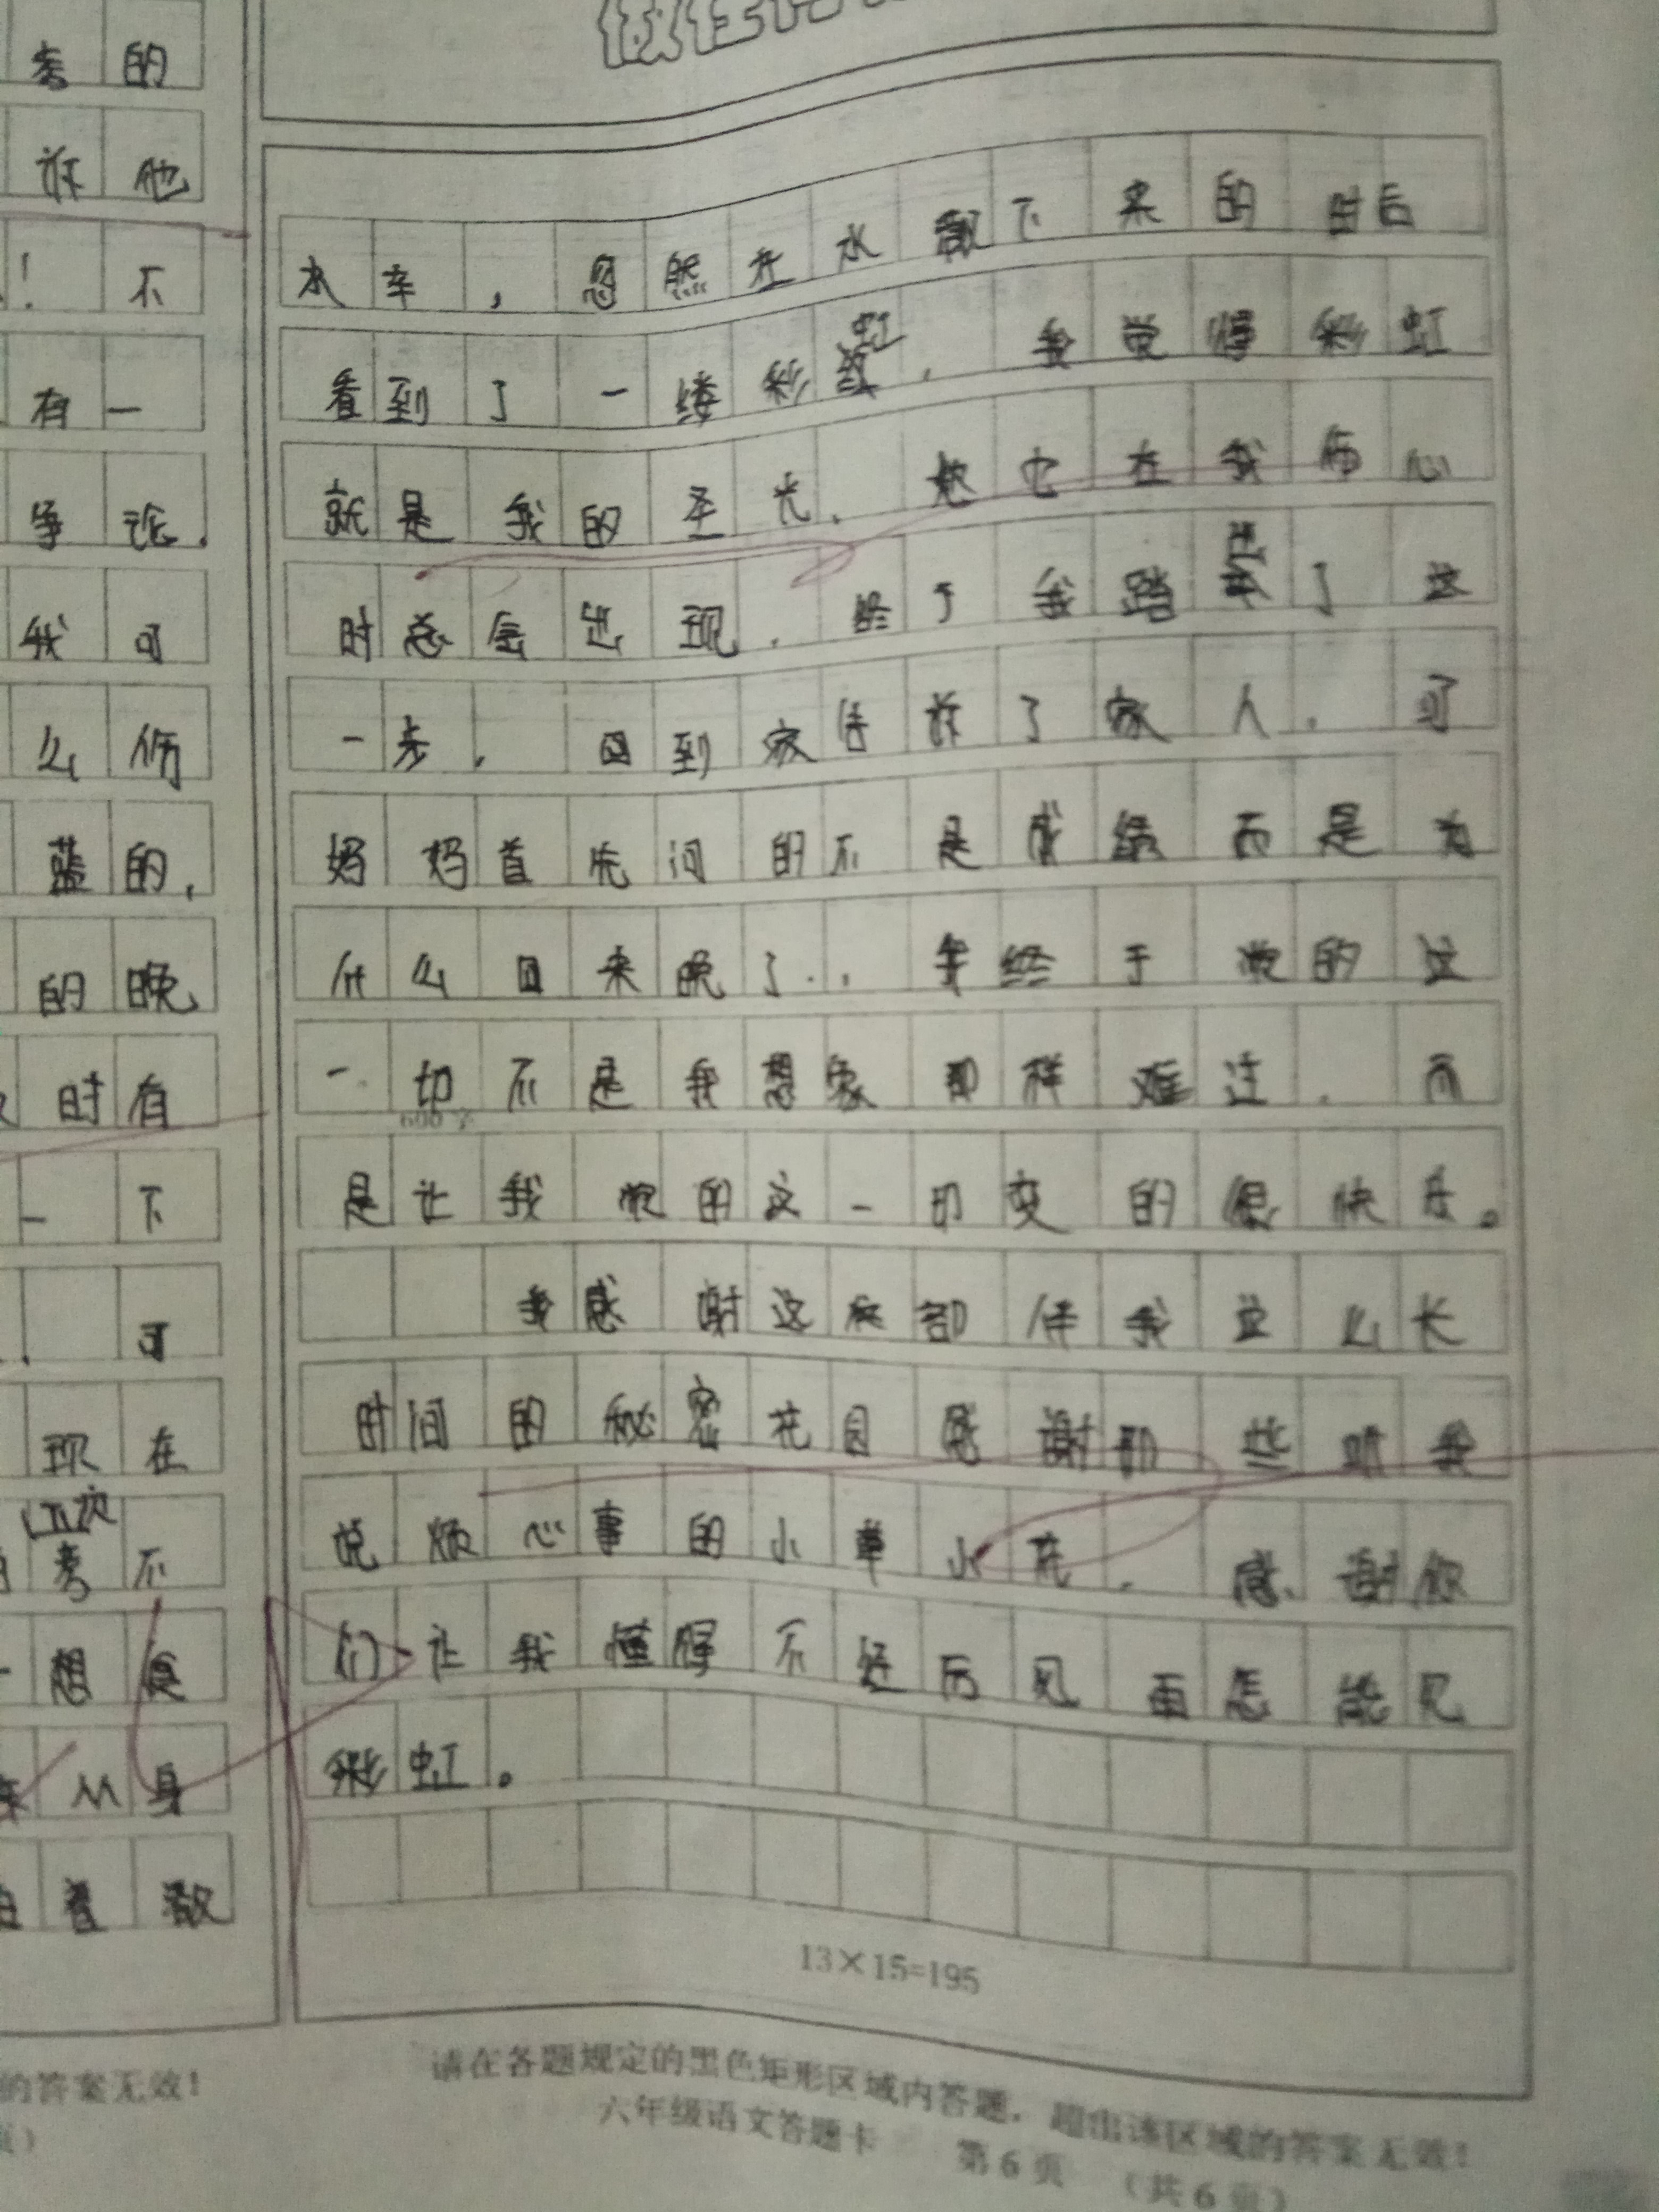 考的
诉他
！不
有一
争论.
我可
么伤
蓝的,
的晚
时有
一下
. 可
现在
次
考不
想是
从身
着散
水车，忽然在水散下来的时后
看到了一缕彩虹. 我觉得彩虹
就是我的圣光. 它在我伤心
时总会出现. 终于我踏出了这
一步. 回到家告诉了家人. 可
妈妈首先问的不是成绩而是为
什么回来晚了. 我终于觉的这
一切不是我想象那样难过. 而
是让我觉的这一切变的很快乐。
我感谢这座部伴我这么长
时间的秘密花园感谢那些听我
说烦心事的小草小花. 感谢你
们让我懂得不经历风雨怎能见
彩虹。
600字
13×15=195
的答案无效！
请在各题规定的黑色矩形区域内答题，超出该区域的答案无效！
六年级语文答题卡 第6页 （共6页）